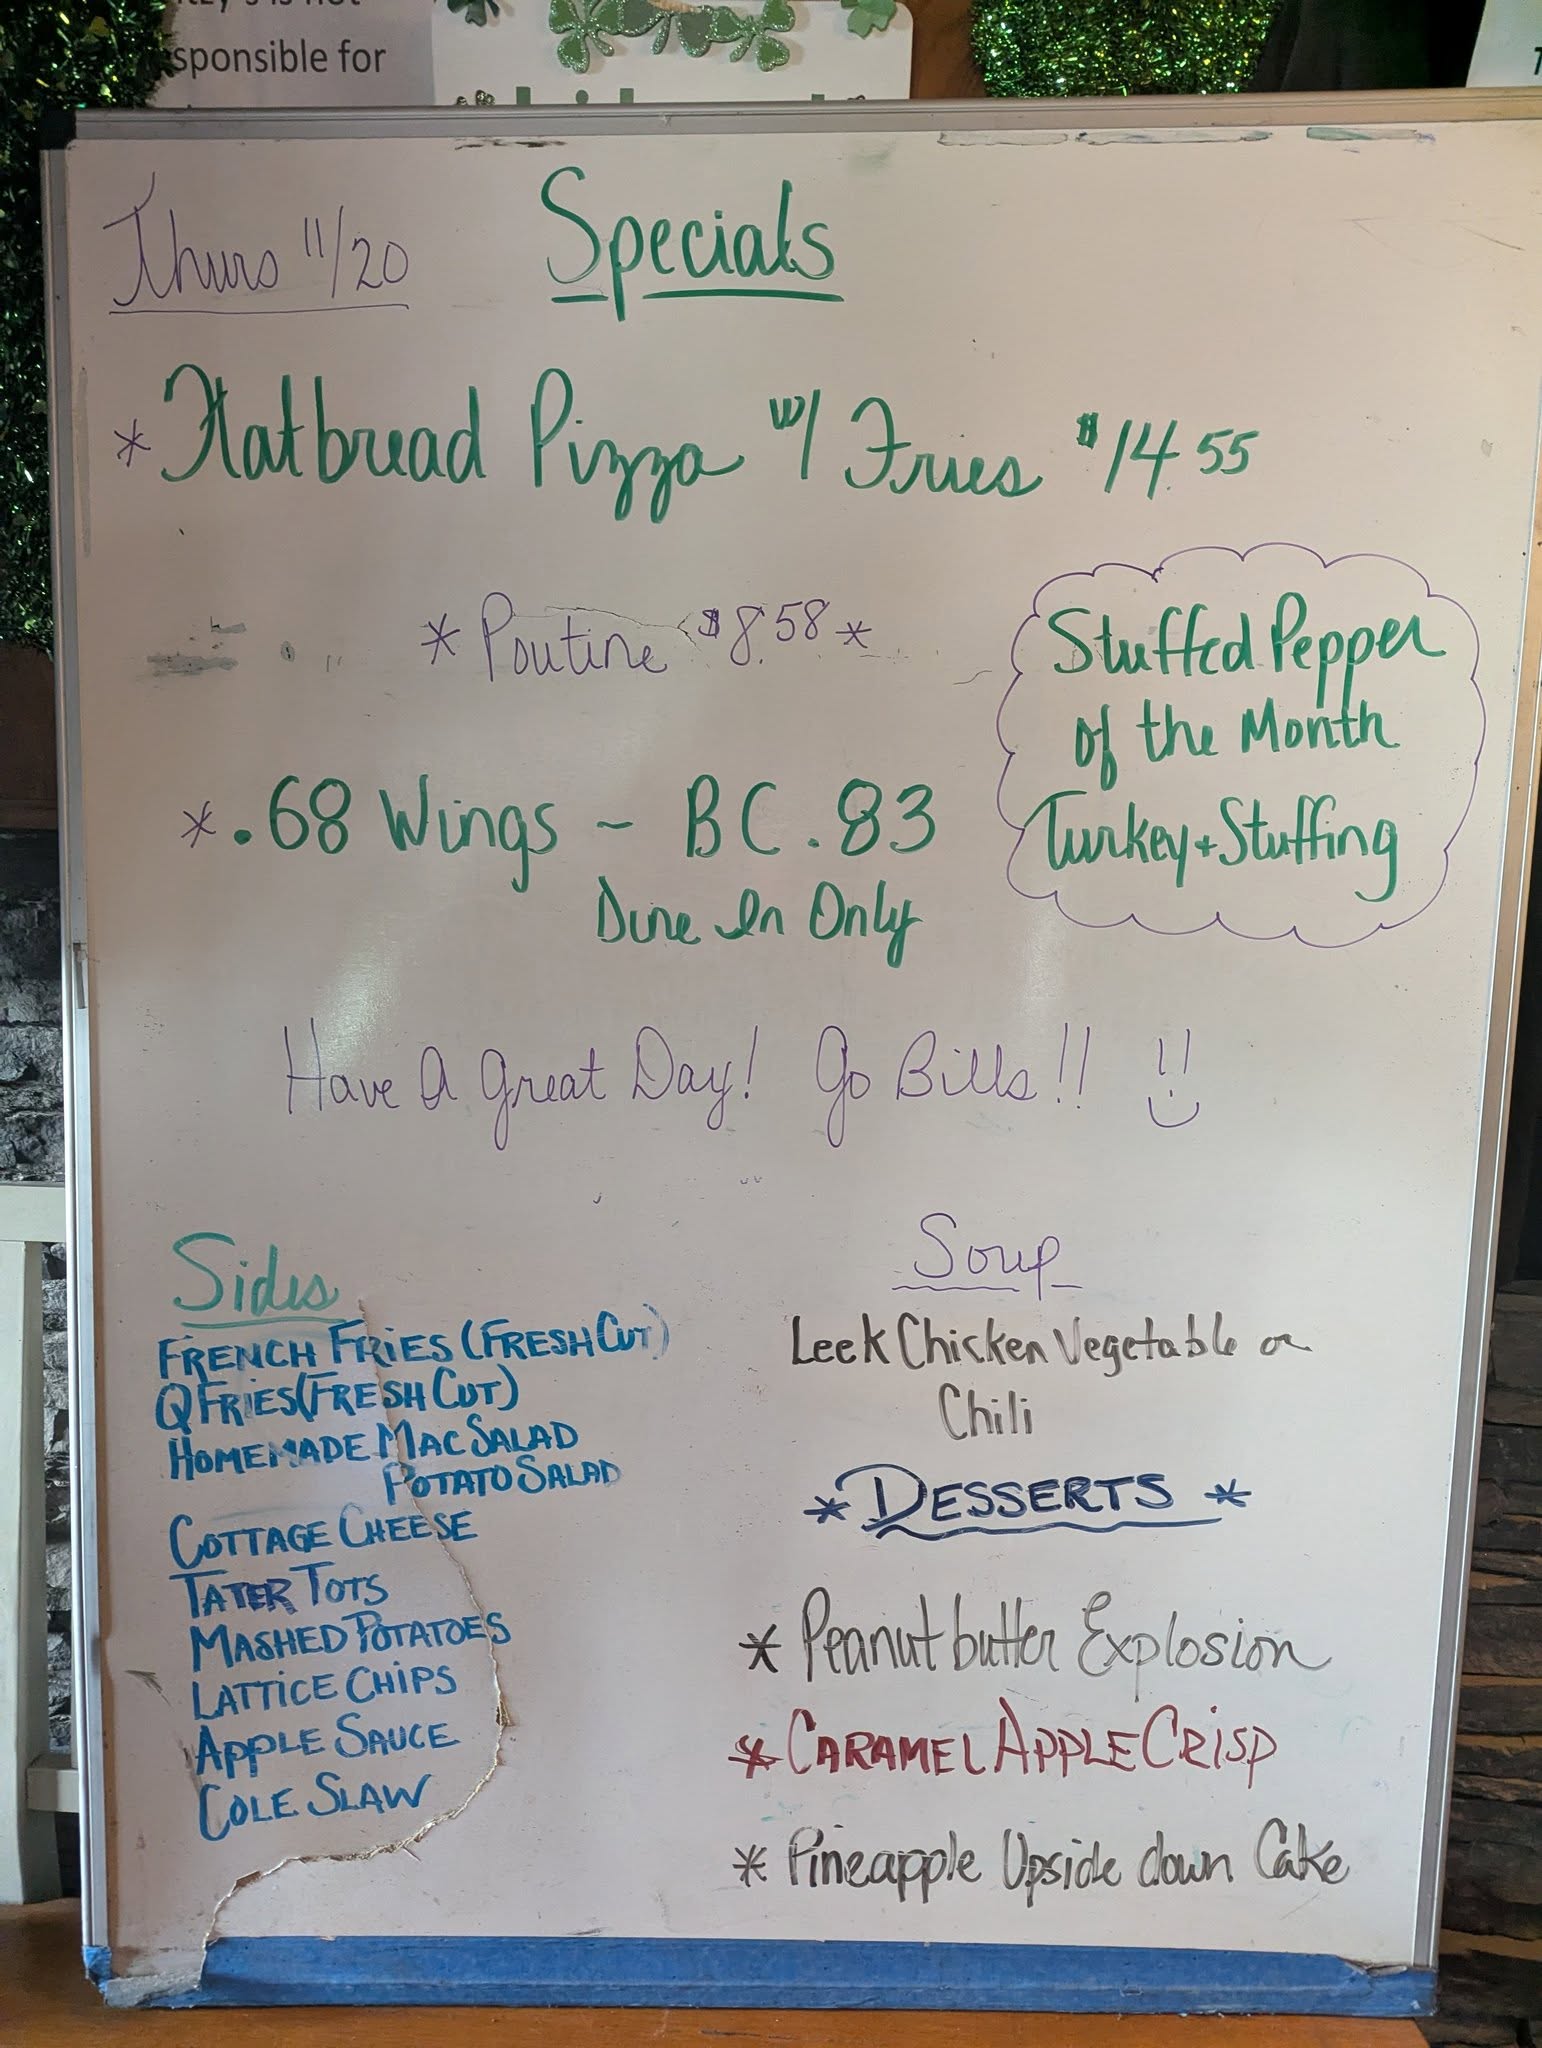 sponsible for
Thurs 11/20
Specials
* Flatbread Pizza w/ Fries $14.55
* Poutine $8.58 *
Stuffed Pepper
of the Month
Turkey + Stuffing
* .68 Wings ~ BC .83
Dine In Only
Have A Great Day! Go Bills!!
Sides
FRENCH FRIES (FRESH CUT)
Q FRIES (FRESH CUT)
HOMEMADE MAC SALAD
POTATO SALAD
COTTAGE CHEESE
TATER TOTS
MASHED POTATOES
LATTICE CHIPS
APPLE SAUCE
COLE SLAW
Soup
Leek Chicken Vegetable or
Chili
* DESSERTS *
* Peanutbutter Explosion
* CARAMEL APPLE CRISP
* Pineapple Upside down Cake